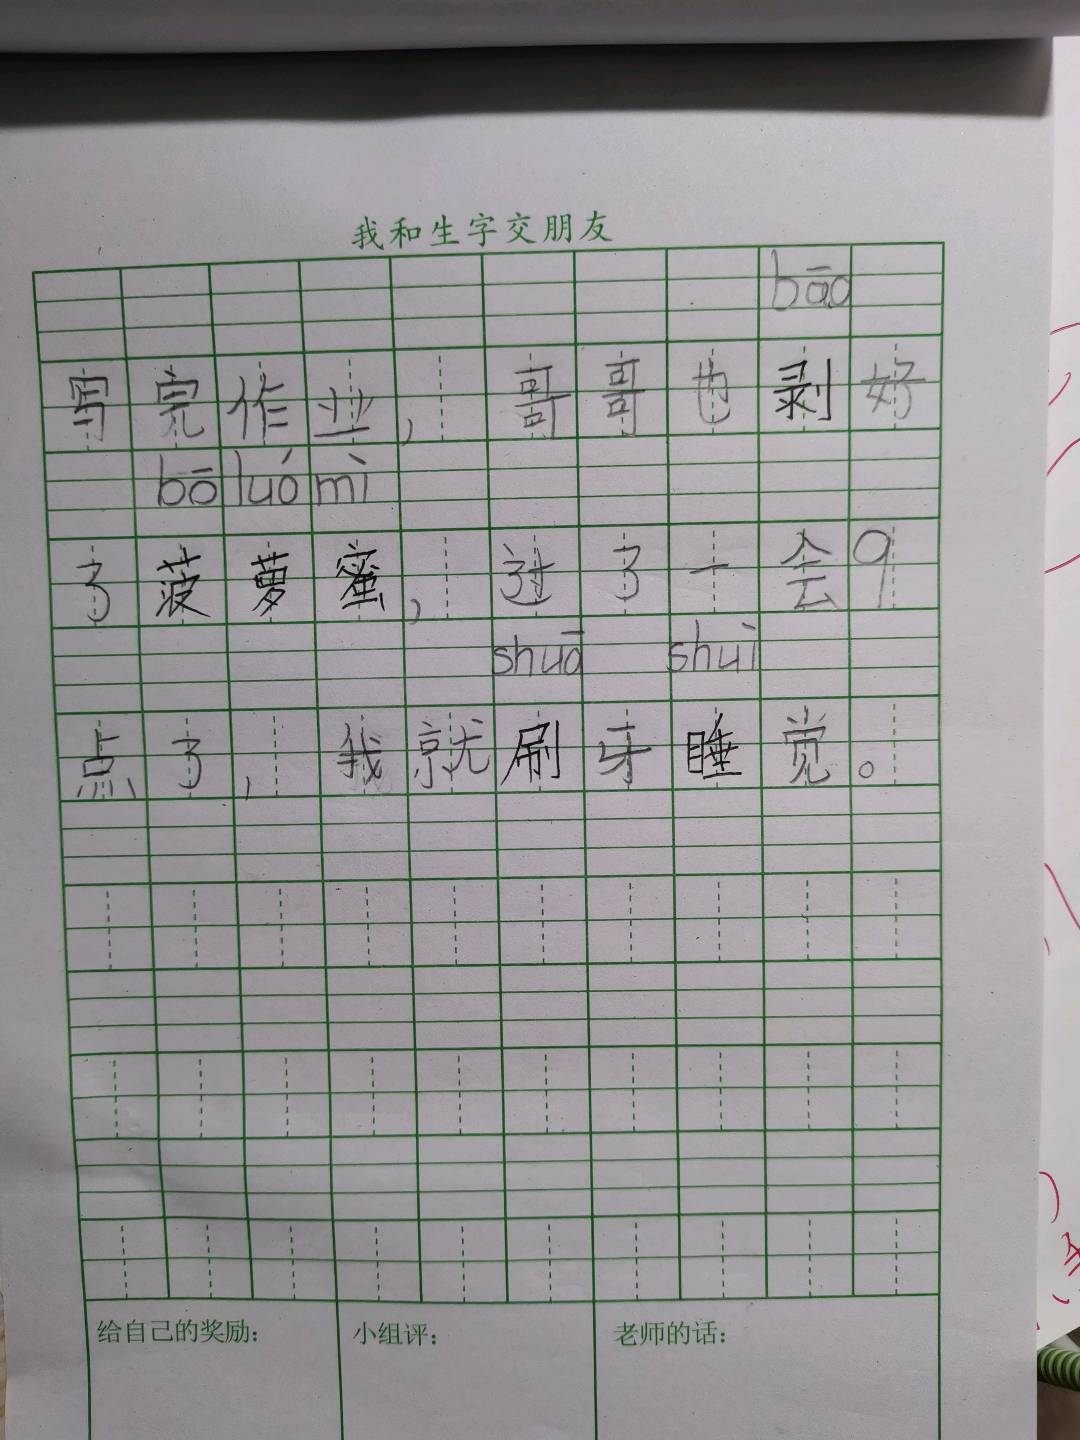 我和生字交朋友
bāo
写完作业，哥哥也剥好
bō luó mì
了菠萝蜜，过了一会9
shuā shuì
点了，我就刷牙睡觉。
给自己的奖励： 小组评： 老师的话：